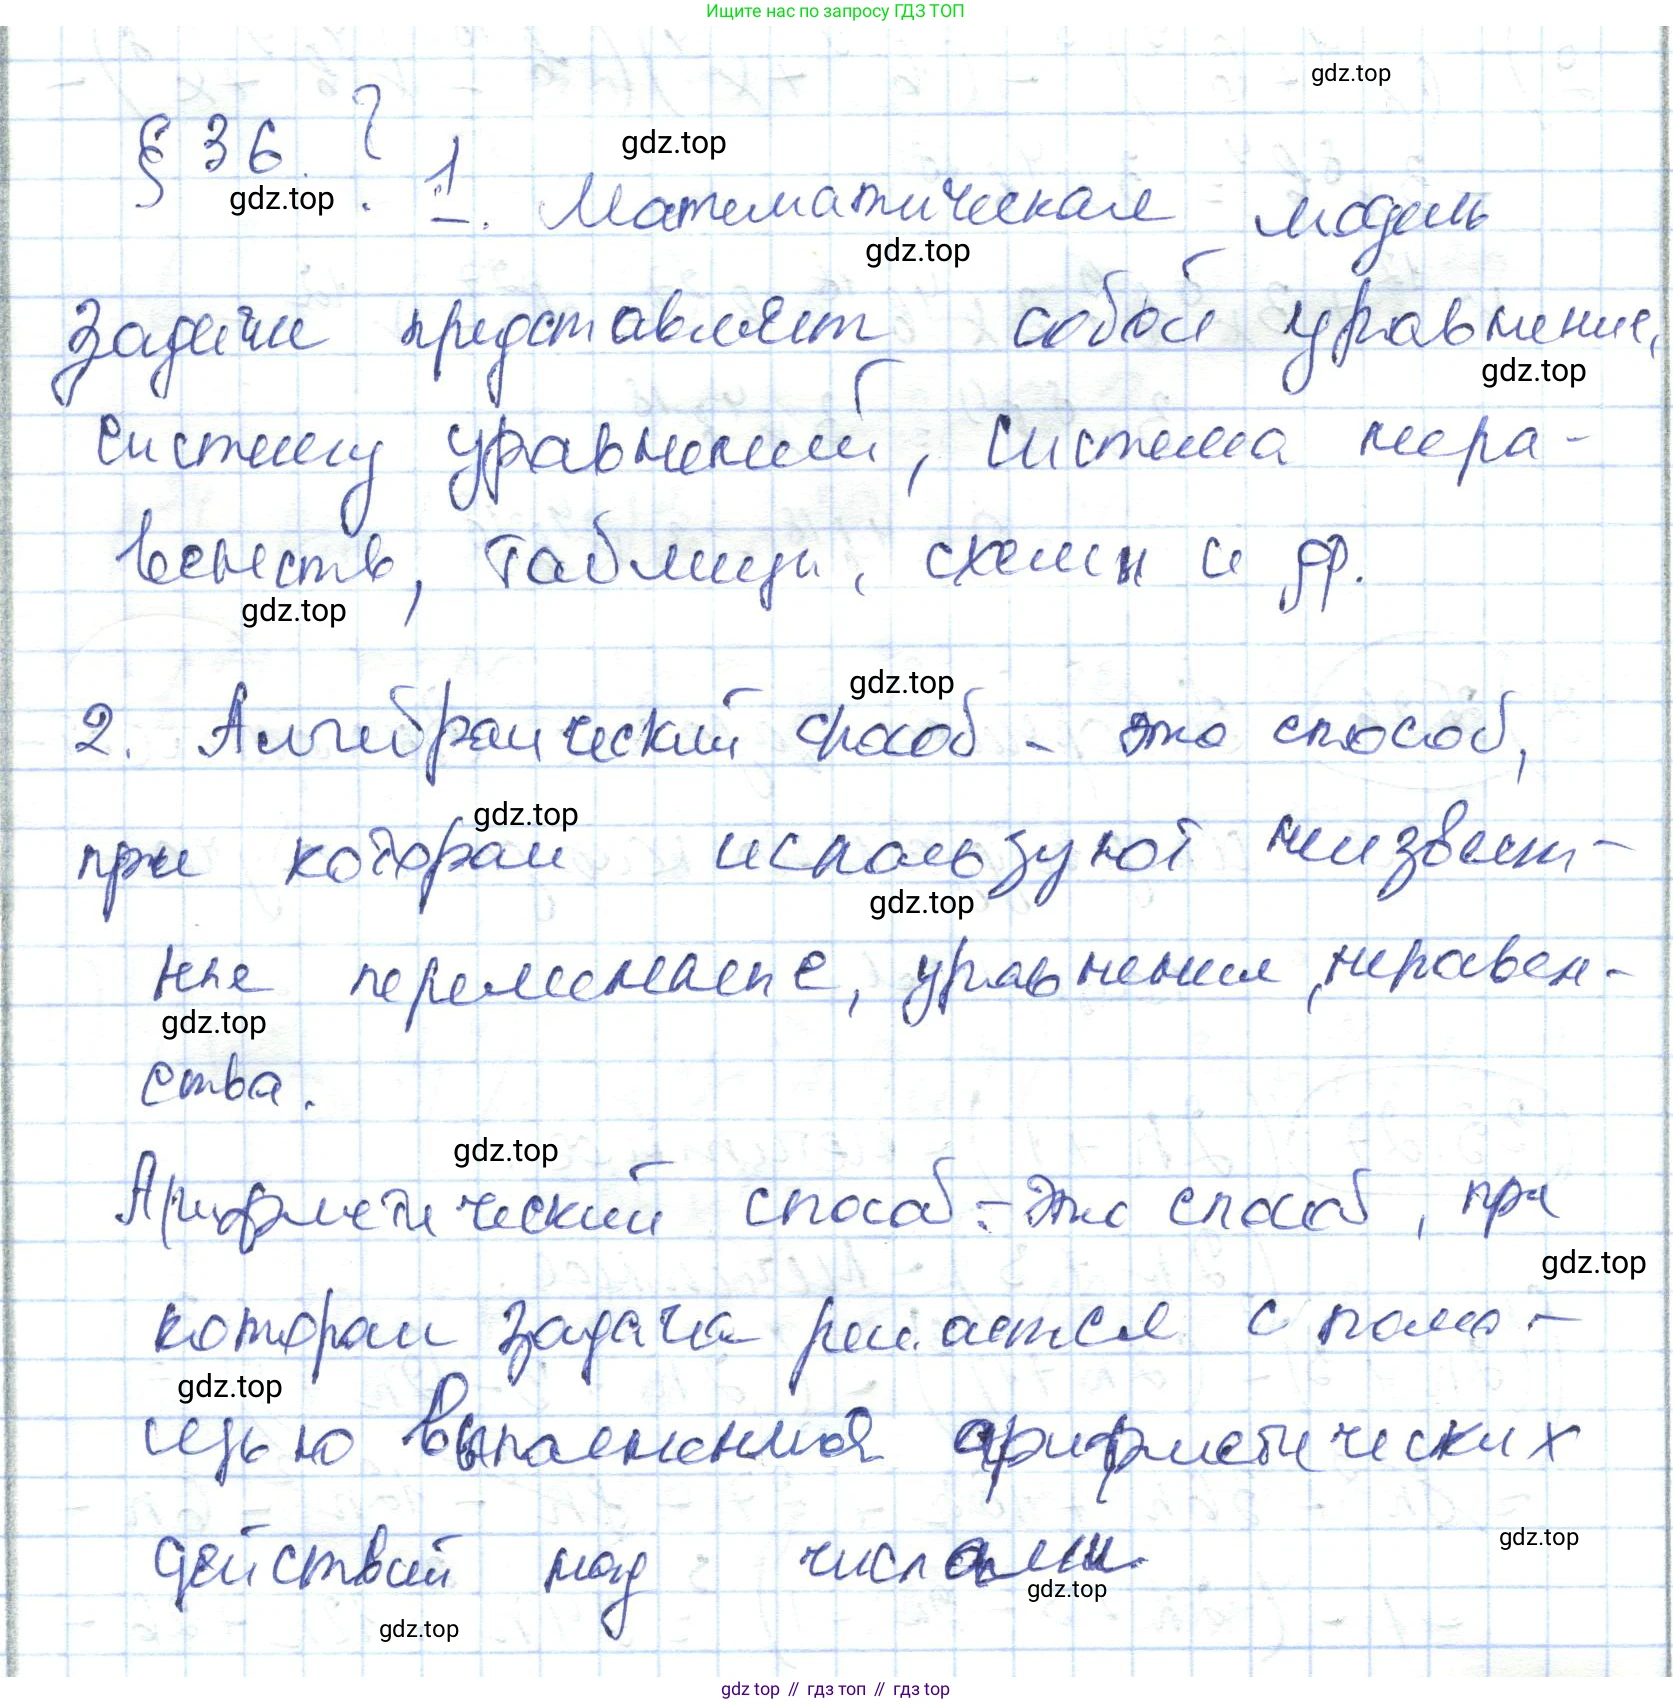 Ищите нас по запросу ГДЗ ТОП
gdz.top
§ 36. ? 1. Математическая модель
gdz.top
gdz.top
gdz.top
задачи представляет собой уравнение,
gdz.top
систему уравнений, система нера-
венств, таблицы, схемы и др.
gdz.top
gdz.top
2. Алгебраический способ - это способ,
gdz.top
при котором используют неизвест-
gdz.top
ные переменные, уравнения, неравен-
gdz.top
ства.
gdz.top
Арифметический способ - это способ, при
gdz.top
котором задача решается с помо-
gdz.top
щью выполнения арифметических
действий над числами.
gdz.top
gdz.top
gdz.top
gdz.top // гдз топ // гдз top